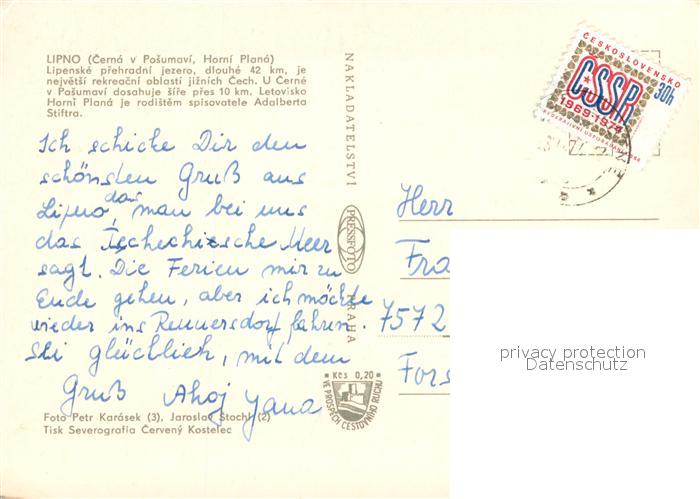 LIPNO (Černá v Pošumaví, Horní Planá)
Lipenské přehradní jezero, dlouhé 42 km, je
největší rekreační oblastí jižních Čech. U Černé
v Pošumaví dosahuje šíře přes 10 km. Letovisko
Horní Planá je rodištěm spisovatele Adalberta
Stiftra.
Ich schicke Dir den
schönsten Gruß aus
Lipno, das man bei uns
das Tschechiesche Meer
sagt. Die Ferien mir zu
Ende gehen, aber ich möchte
wieder ins Rennersdorf fahren.
Sei glücklich, mit dem
Gruß Ahoj Jana
Foto Petr Karásek (3), Jaroslav Stochl (2)
Tisk Severografia Červený Kostelec
NAKLADATELSTVÍ
PRESSFOTO
PRAHA
Kčs 0,20
VE PROSPĚCH CESTOVNÍHO RUCHU
ČESKOSLOVENSKO
ČSSR
30h
1969-1974
FEDERATIVNÍ USPOŘÁDÁNÍ ČSSR
Herr
Fra
7572
Fors
privacy protection
Datenschutz